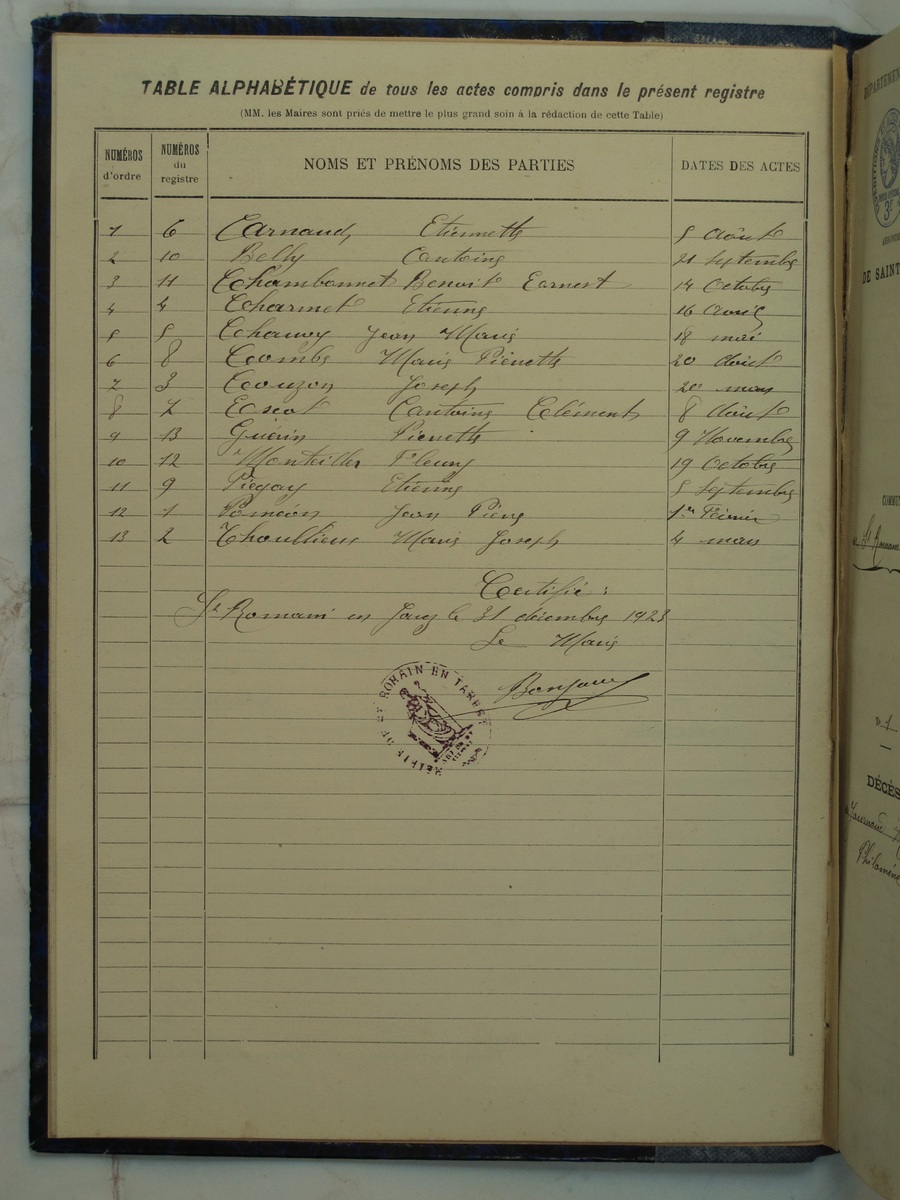 TABLE ALPHABÉTIQUE de tous les actes compris dans le présent registre
(MM. les Maires sont priés de mettre le plus grand soin à la rédaction de cette Table)
NUMÉROS d'ordre NUMÉROS du registre NOMS ET PRÉNOMS DES PARTIES DATES DES ACTES
1 6 Carnaud, Etiennette 5 Août
2 10 Belly Antoine 21 Septembre
3 11 Chambonnet Benoit Ernest 14 Octobre
4 4 Charmet Etienne 16 Avril
5 5 Chauvy Jean Marie 18 mai
6 8 Combe Marie Pierrette 20 Août
7 3 Couzon Joseph 20 mars
8 7 Escot Antoine Clément 8 Août
9 13 Guérin Pierrette 9 Novembre
10 12 Monteiller Fleury 19 Octobre
11 9 Piegay Etienne 5 Septembre
12 1 Poméon Jean Pierre 1er Février
13 2 Thoullieux Marie Joseph 4 mars
Certifié :
St Romain en Jarez le 31 décembre 1923
Le Maire
MAIRIE DE ST ROMAIN EN JAREST
DÉPARTEMEN
3F
DE SAINT
COMMU
St Romain
n° 1
DÉCÈS
Philomène